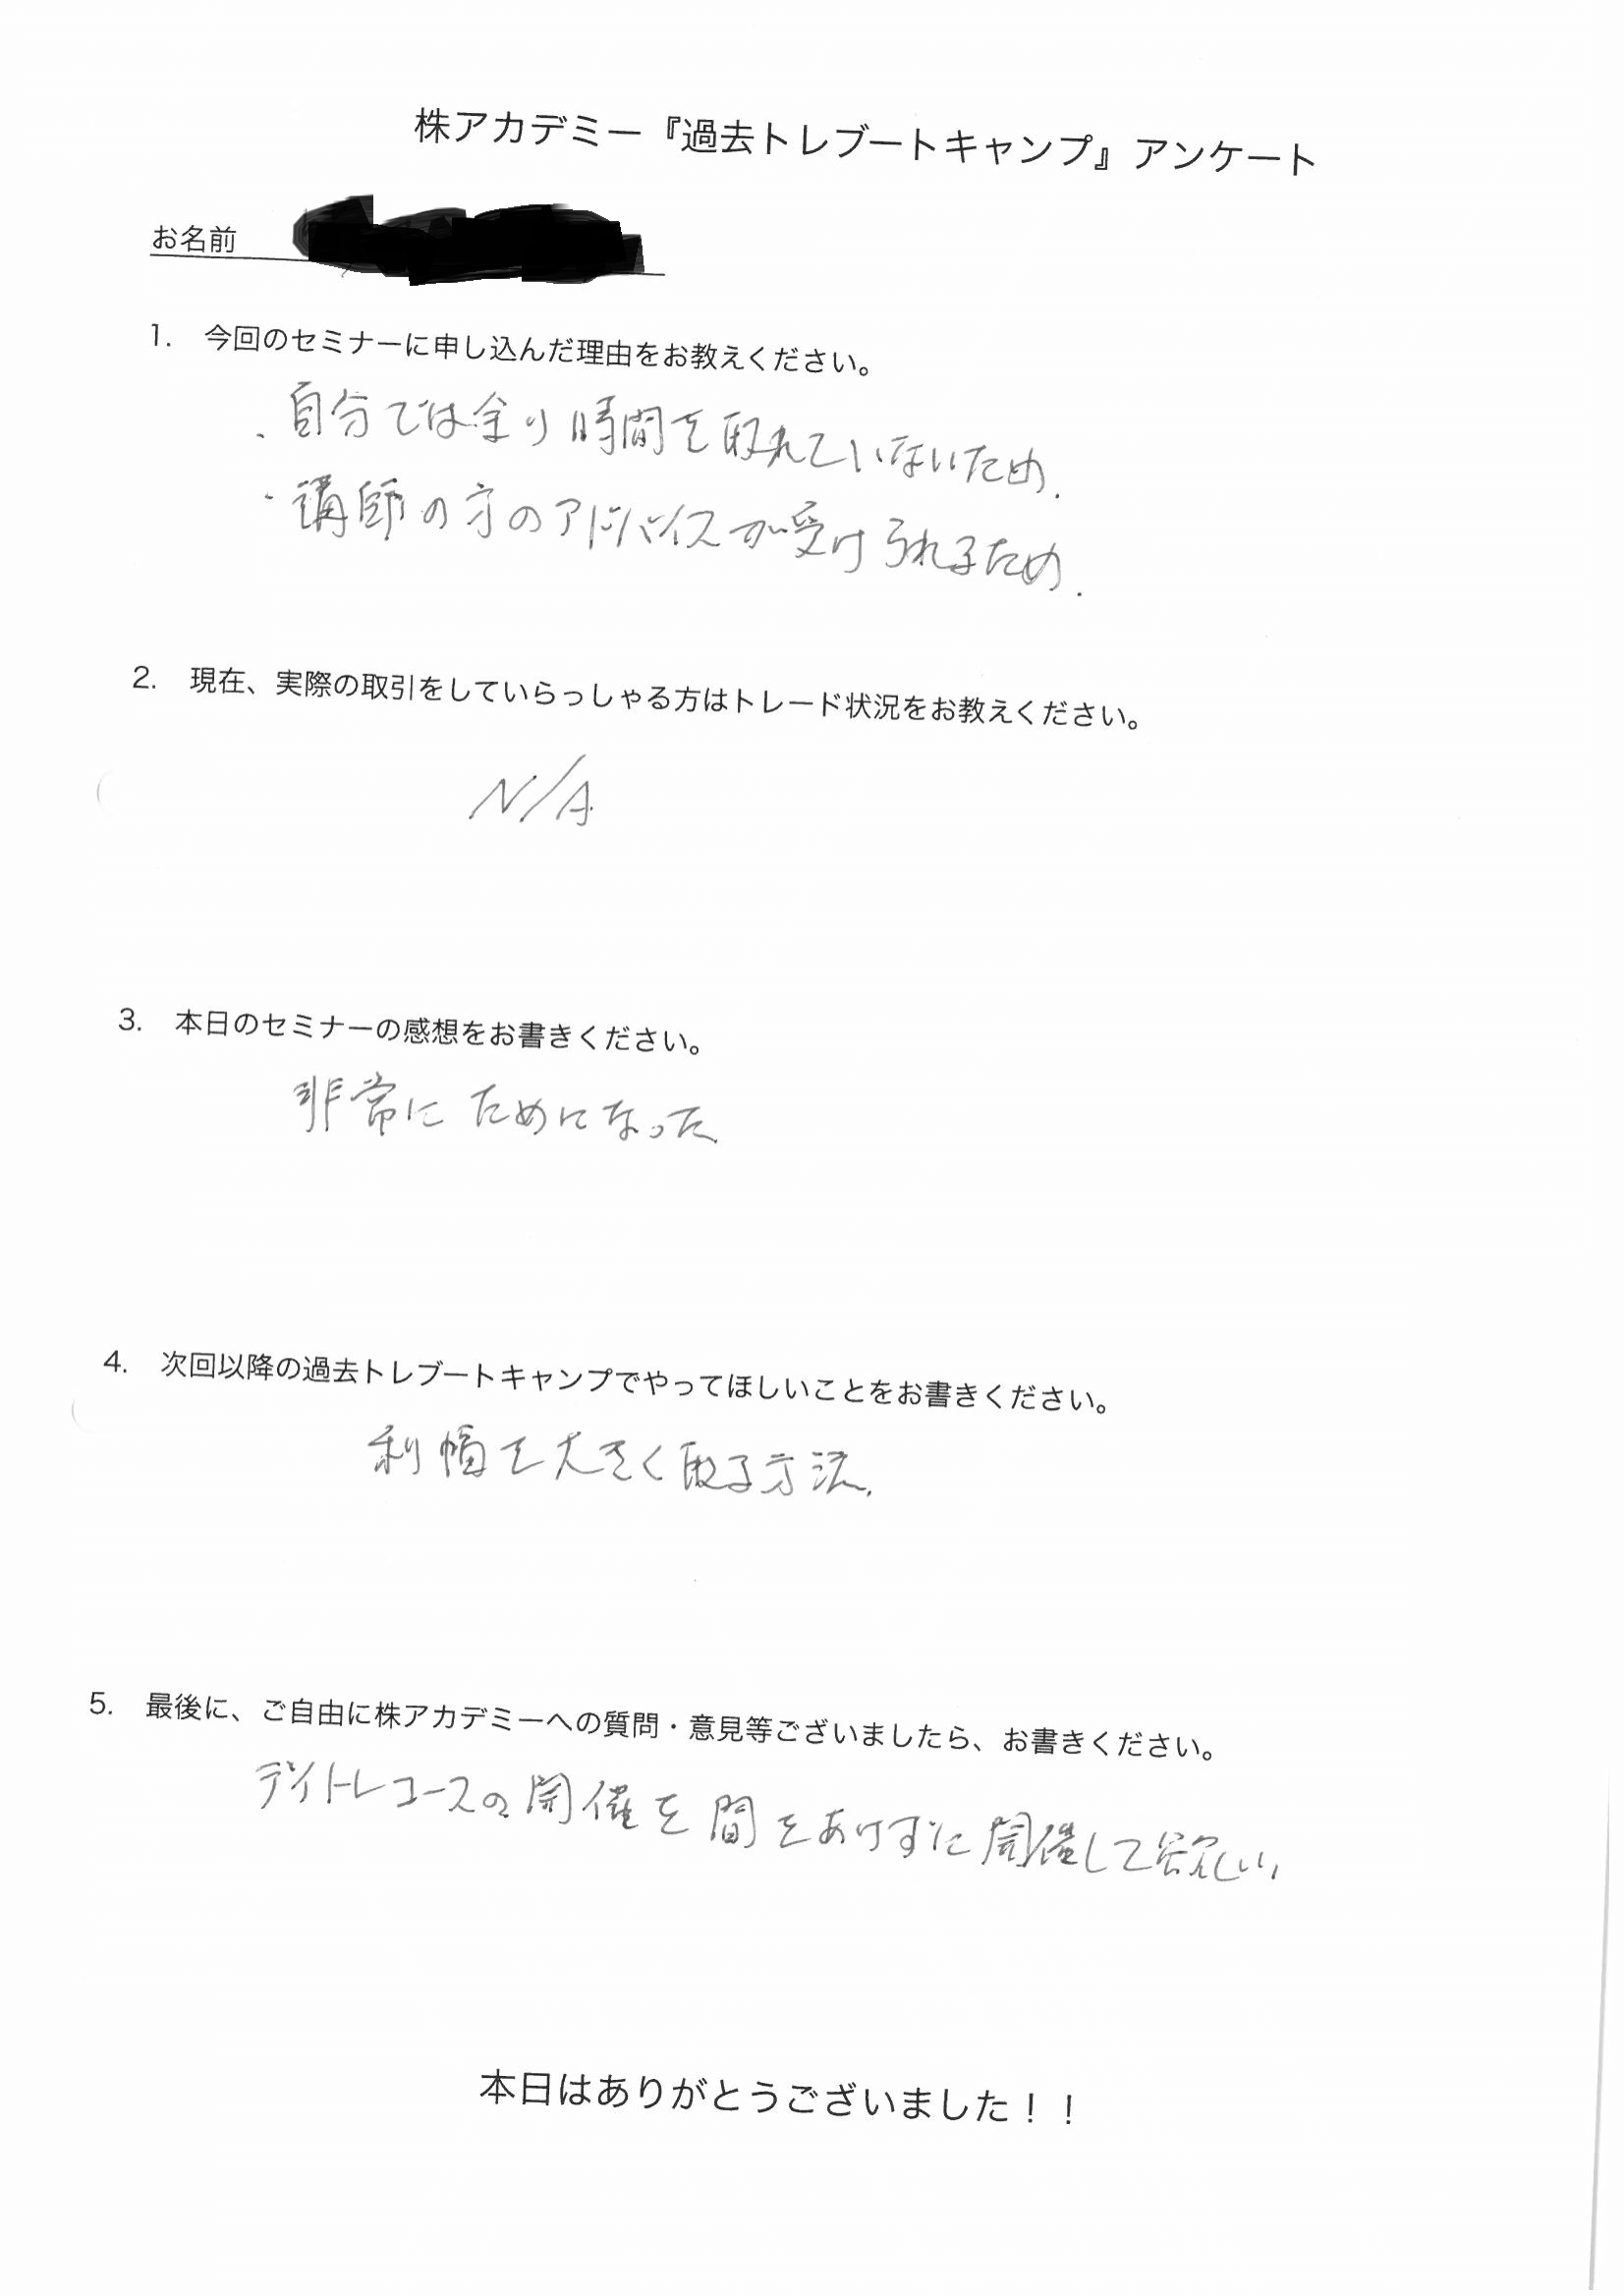 株アカデミー『過去トレブートキャンプ』アンケート
お名前
1. 今回のセミナーに申し込んだ理由をお教えください。
・自分では余り時間を取れていないため.
・講師の方のアドバイスが受けられるため.
2. 現在、実際の取引をしていらっしゃる方はトレード状況をお教えください。
N/A
3. 本日のセミナーの感想をお書きください。
非常にためになった
4. 次回以降の過去トレブートキャンプでやってほしいことをお書きください。
利幅を大きく取る方法.
5. 最後に、ご自由に株アカデミーへの質問・意見等ございましたら、お書きください。
デイトレコースの開催を間をあけずに開催して欲しい,
本日はありがとうございました！！